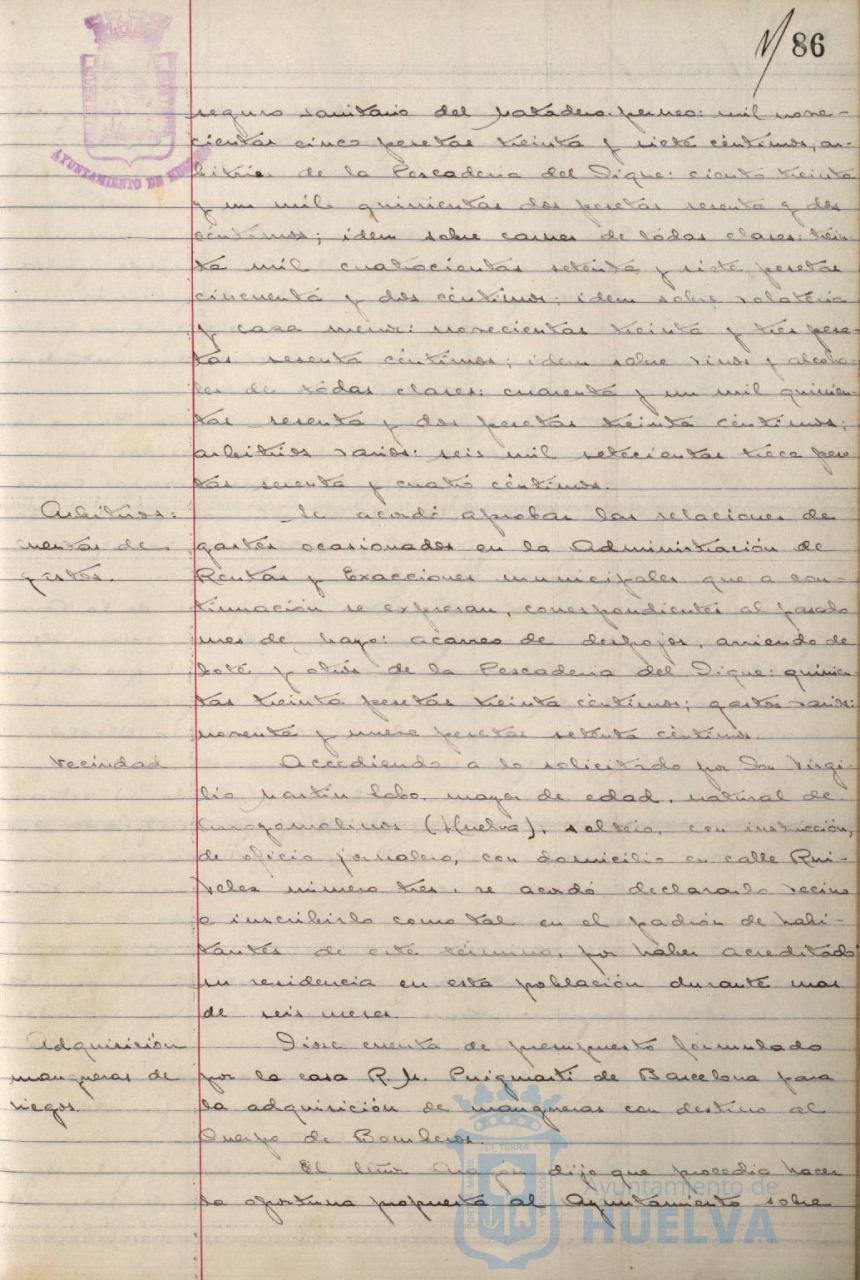 86
AYUNTAMIENTO DE HUELVA
seguro sanitario del matadero, perneo: mil nove-
cientas cinco pesetas treinta y siete céntimos; ar-
bitrio de la Pescaderia del Dique: ciento treinta
y un mil quinientas dos pesetas sesenta y dos
céntimos; idem sobre carnes de todas clases: trein-
ta mil cuatrocientas setenta y siete pesetas
cincuenta y dos céntimos; idem sobre volateria
y caza menor: novecientas treinta y tres pese-
tas sesenta céntimos; idem sobre vinos y alcoho-
les de todas clases: cuarenta y un mil quinien-
tas sesenta y dos pesetas treinta céntimos;
arbitrios varios: seis mil setecientas trece pese
tas sesenta y cuatro céntimos.
Arbitrios:
cuentas de
gastos.
Se acordó aprobar las relaciones de
gastos ocasionados en la Administración de
Rentas y Exacciones municipales que a con-
tinuación se expresan, correspondientes al pasado
mes de Mayo: acarreo de despojos, arriendo de
bote y otros de la Pescaderia del Dique: quinien-
tas treinta pesetas treinta céntimos; gastos varios:
noventa y nueve pesetas setenta céntimos.
Vecindad
Accediendo a lo solicitado por Don Virgi-
lio Martín Lobo, mayor de edad, natural de
Arroyomolinos (Huelva), soltero, con instrucción,
de oficio jornalero, con domicilio en calle Rui-
Velez número tres, se acordó declararlo vecino
e inscribirlo como tal en el padrón de habi-
tantes de este término, por haber acreditado
su residencia en esta población durante mas
de seis meses.
Adquisición
mangueras de
riegos.
Diose cuenta de presupuesto formulado
por la casa R. M. Puigmarti de Barcelona para
la adquisición de mangueras con destino al
Cuerpo de Bomberos.
El Señor dijo que procedia hacer
la oportuna propuesta al Ayuntamiento sobre
Ayuntamiento de
HUELVA